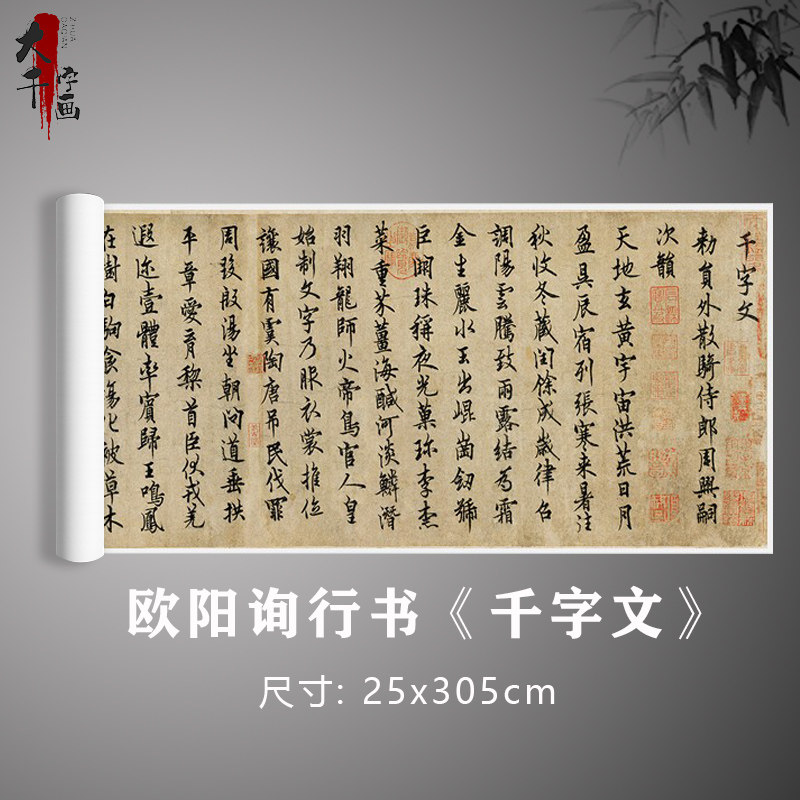 大千
字画
ZIHUA
DAQIAN
千字文
勅員外散騎侍郎周興嗣
次韻
天地玄黄宇宙洪荒日月
盈昃辰宿列張寒来暑往
秋收冬蔵閏餘成歲律召
調陽雲騰致雨露結為霜
金生麗水玉出崐崗劒號
巨闕珠稱夜光菓珎李柰
菜重芥薑海鹹河淡鱗潛
羽翔龍師火帝鳥官人皇
始制文字乃服衣裳推位
讓國有虞陶唐吊民伐罪
周發殷湯坐朝問道垂拱
平章愛育黎首臣伏戎羌
遐迩壹體率賓歸王鳴鳳
在樹白駒食場化被草木
欧阳询行书《千字文》
尺寸: 25x305cm